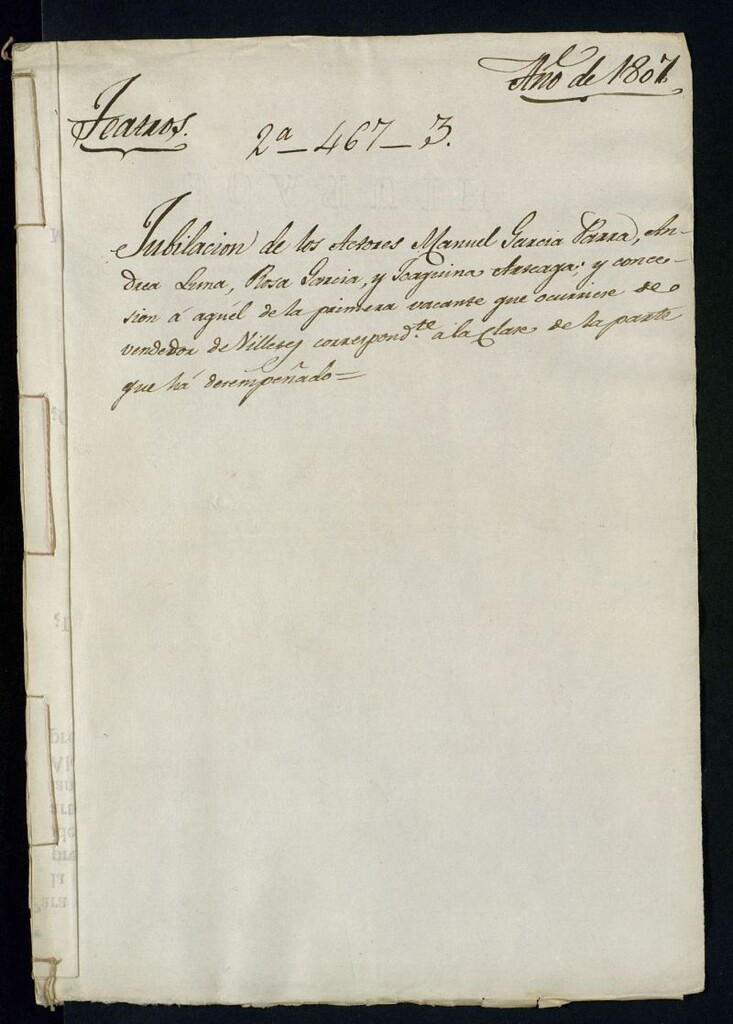 Año de 1807.
Teatros.
2ª - 467 - 3.
Jubilacion de los Actores Manuel Garcia Parra, An-
drea Luna, Rosa Garcia, y Joaquina Arteaga; y conce-
sion á aquél de la primera vacante que ocurriere de
vendedor de Villetes correspond.te á la Clase de la parte
que há desempeñado=